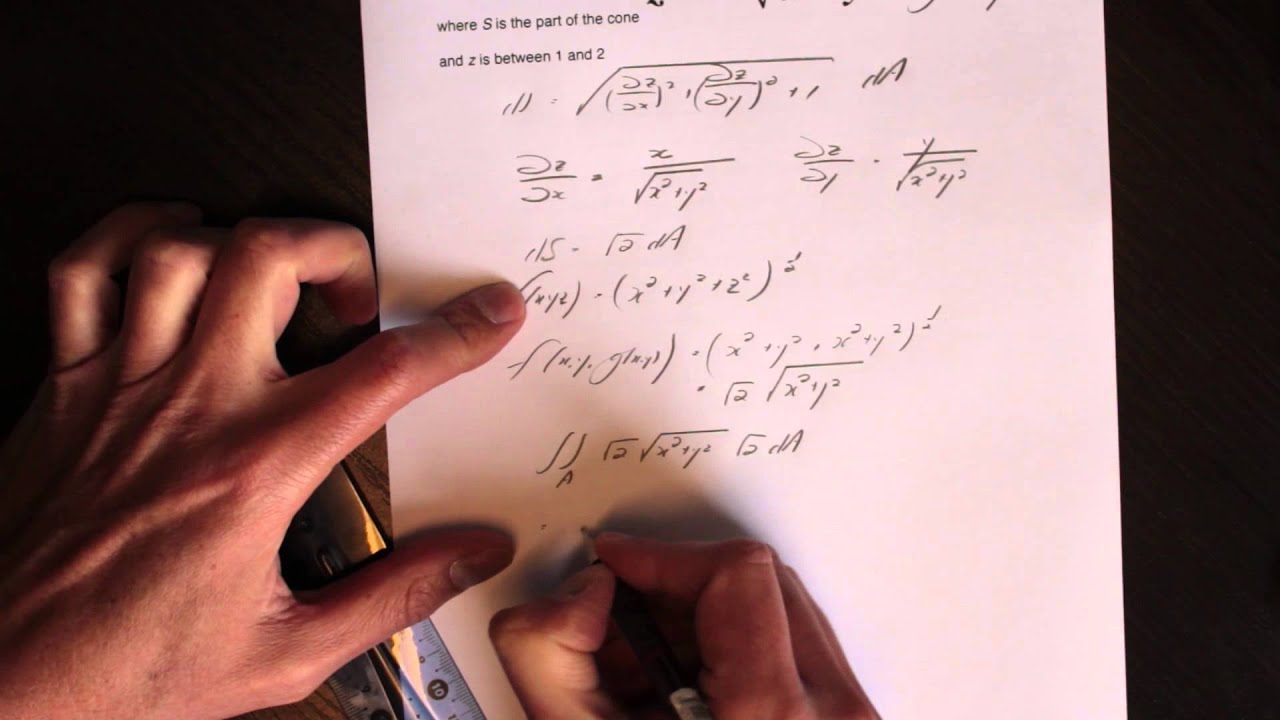 where S is the part of the cone
and z is between 1 and 2
dS = √((∂z/∂x)² + (∂z/∂y)² + 1) dA
∂z/∂x = x/√(x²+y²) ∂z/∂y = y/√(x²+y²)
dS = √2 dA
(x,y,z) = (x²+y²+z²)^½
f(x,y,g(x,y)) = (x²+y²+x²+y²)^½
= √2 √(x²+y²)
∬_A √2 √(x²+y²) √2 dA
=
10